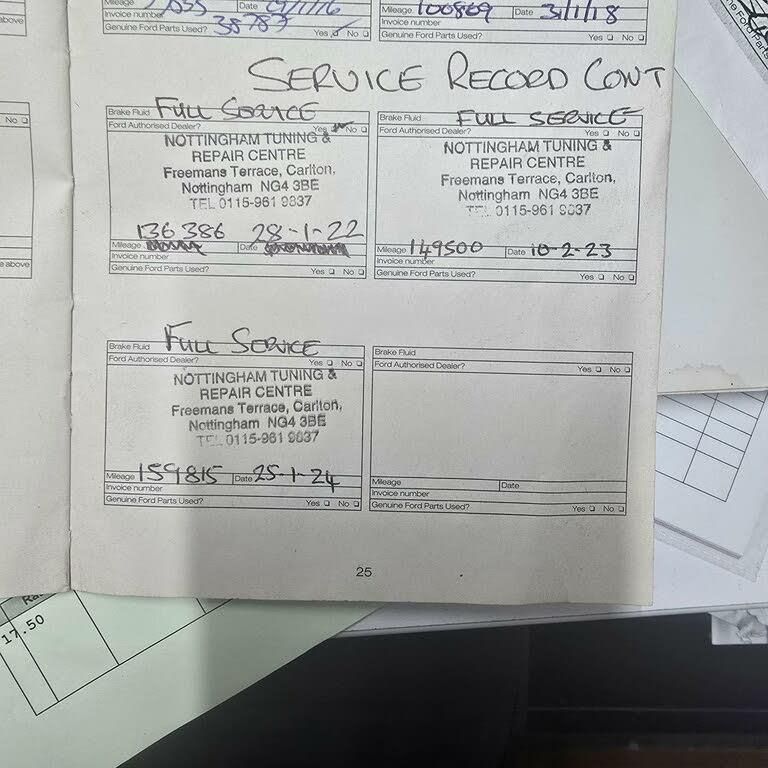 Mileage Date
Invoice number 38783
Genuine Ford Parts Used? Yes No
Mileage 100869 Date 31/1/18
Invoice number
Genuine Ford Parts Used? Yes No
above
No
e above
SERVICE RECORD CONT
Brake Fluid FULL SERVICE
Ford Authorised Dealer? Yes No
NOTTINGHAM TUNING &
REPAIR CENTRE
Freemans Terrace, Carlton,
Nottingham NG4 3BE
TEL 0115-961 9837
136386 28-1-22
Mileage Date
Invoice number
Genuine Ford Parts Used? Yes No
Brake Fluid FULL SERVICE
Ford Authorised Dealer? Yes No
NOTTINGHAM TUNING &
REPAIR CENTRE
Freemans Terrace, Carlton,
Nottingham NG4 3BE
TEL 0115-961 9837
Mileage 149500 Date 10-2-23
Invoice number
Genuine Ford Parts Used? Yes No
FULL SERVICE
Brake Fluid
Ford Authorised Dealer? Yes No
NOTTINGHAM TUNING &
REPAIR CENTRE
Freemans Terrace, Carlton,
Nottingham NG4 3BE
TEL 0115-961 9837
Mileage 159815 Date 25-1-24
Invoice number
Genuine Ford Parts Used? Yes No
Brake Fluid
Ford Authorised Dealer? Yes No
Mileage Date
Invoice number
Genuine Ford Parts Used? Yes No
25
17.50